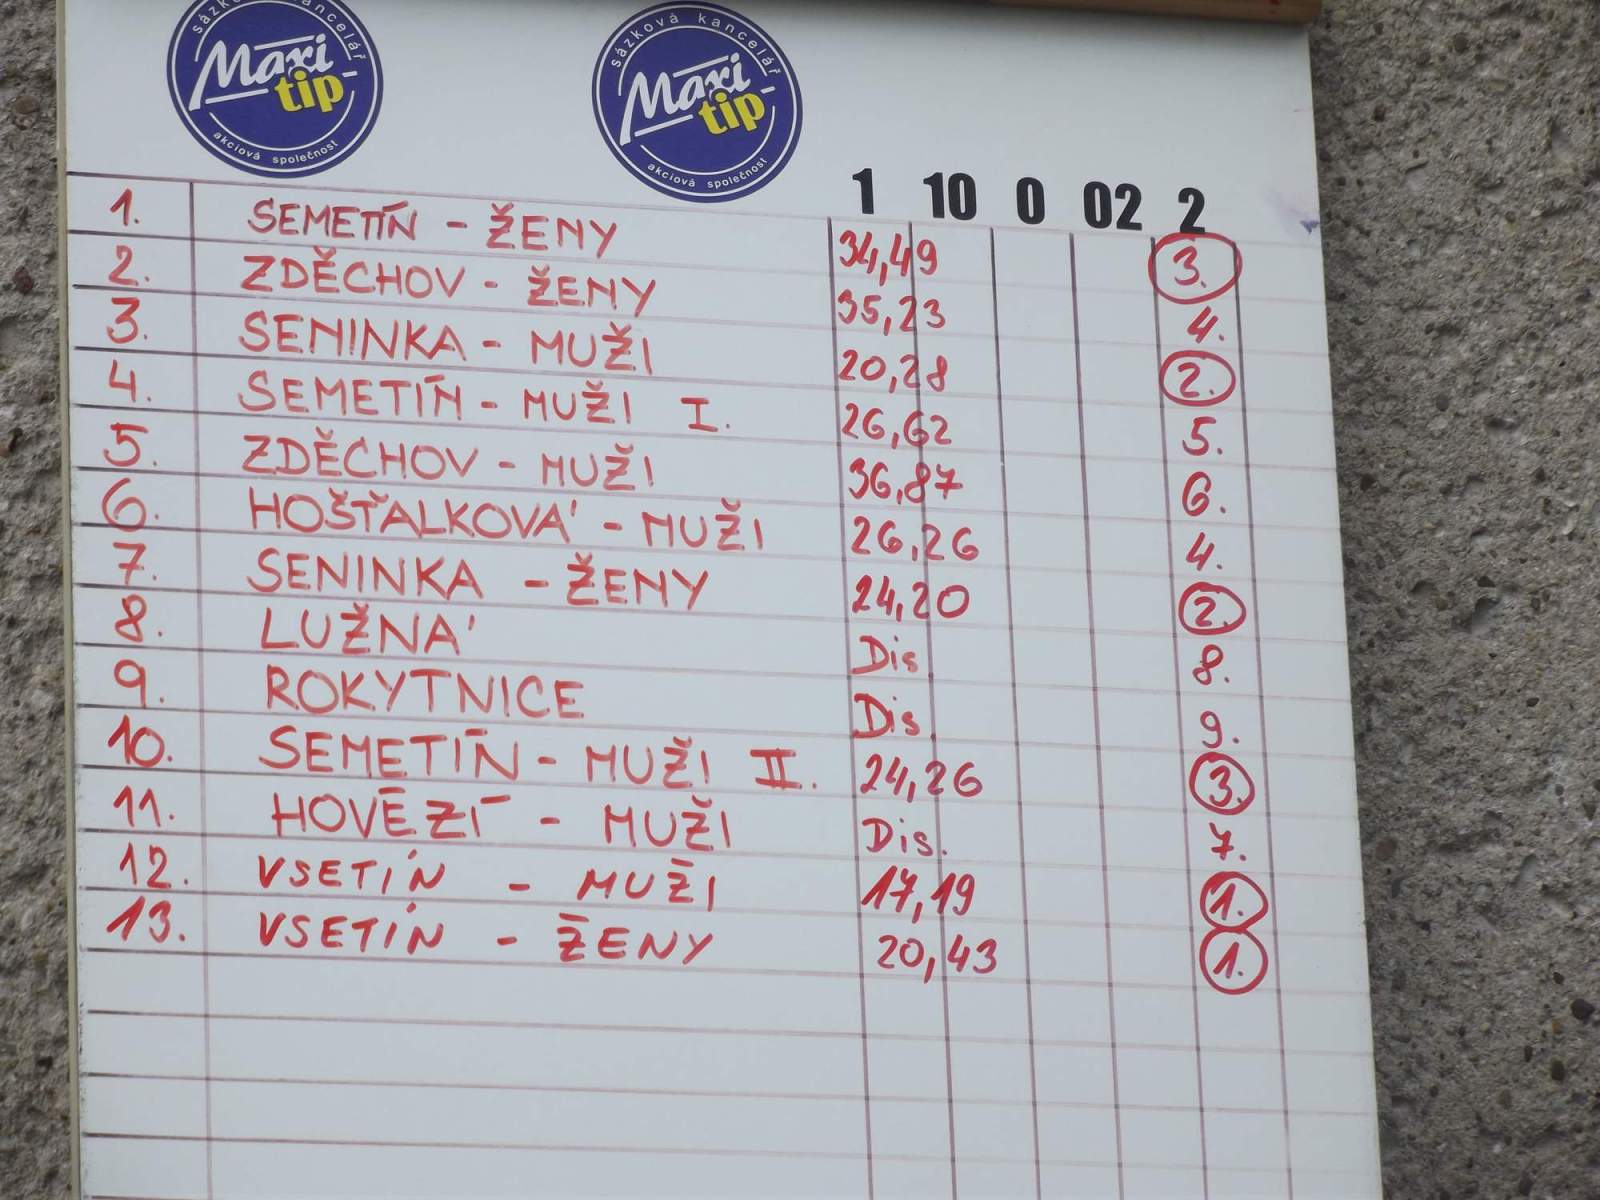 sázková kancelář
Maxi tip
akciová společnost
sázková kancelář
Maxi tip
akciová společnost
1 10 0 02 2
1. SEMETÍN - ŽENY 34,49 3.
2. ZDĚCHOV - ŽENY 35,23 4.
3. SENINKA - MUŽI 20,28 2.
4. SEMETÍN - MUŽI I. 26,62 5.
5. ZDĚCHOV - MUŽI 36,87 6.
6. HOŠŤALKOVÁ - MUŽI 26,26 4.
7. SENINKA - ŽENY 24,20 2.
8. LUŽNÁ Dis. 8.
9. ROKYTNICE Dis. 9.
10. SEMETÍN - MUŽI II. 24,26 3.
11. HOVĚZÍ - MUŽI Dis. 7.
12. VSETÍN - MUŽI 17,19 1.
13. VSETÍN - ŽENY 20,43 1.